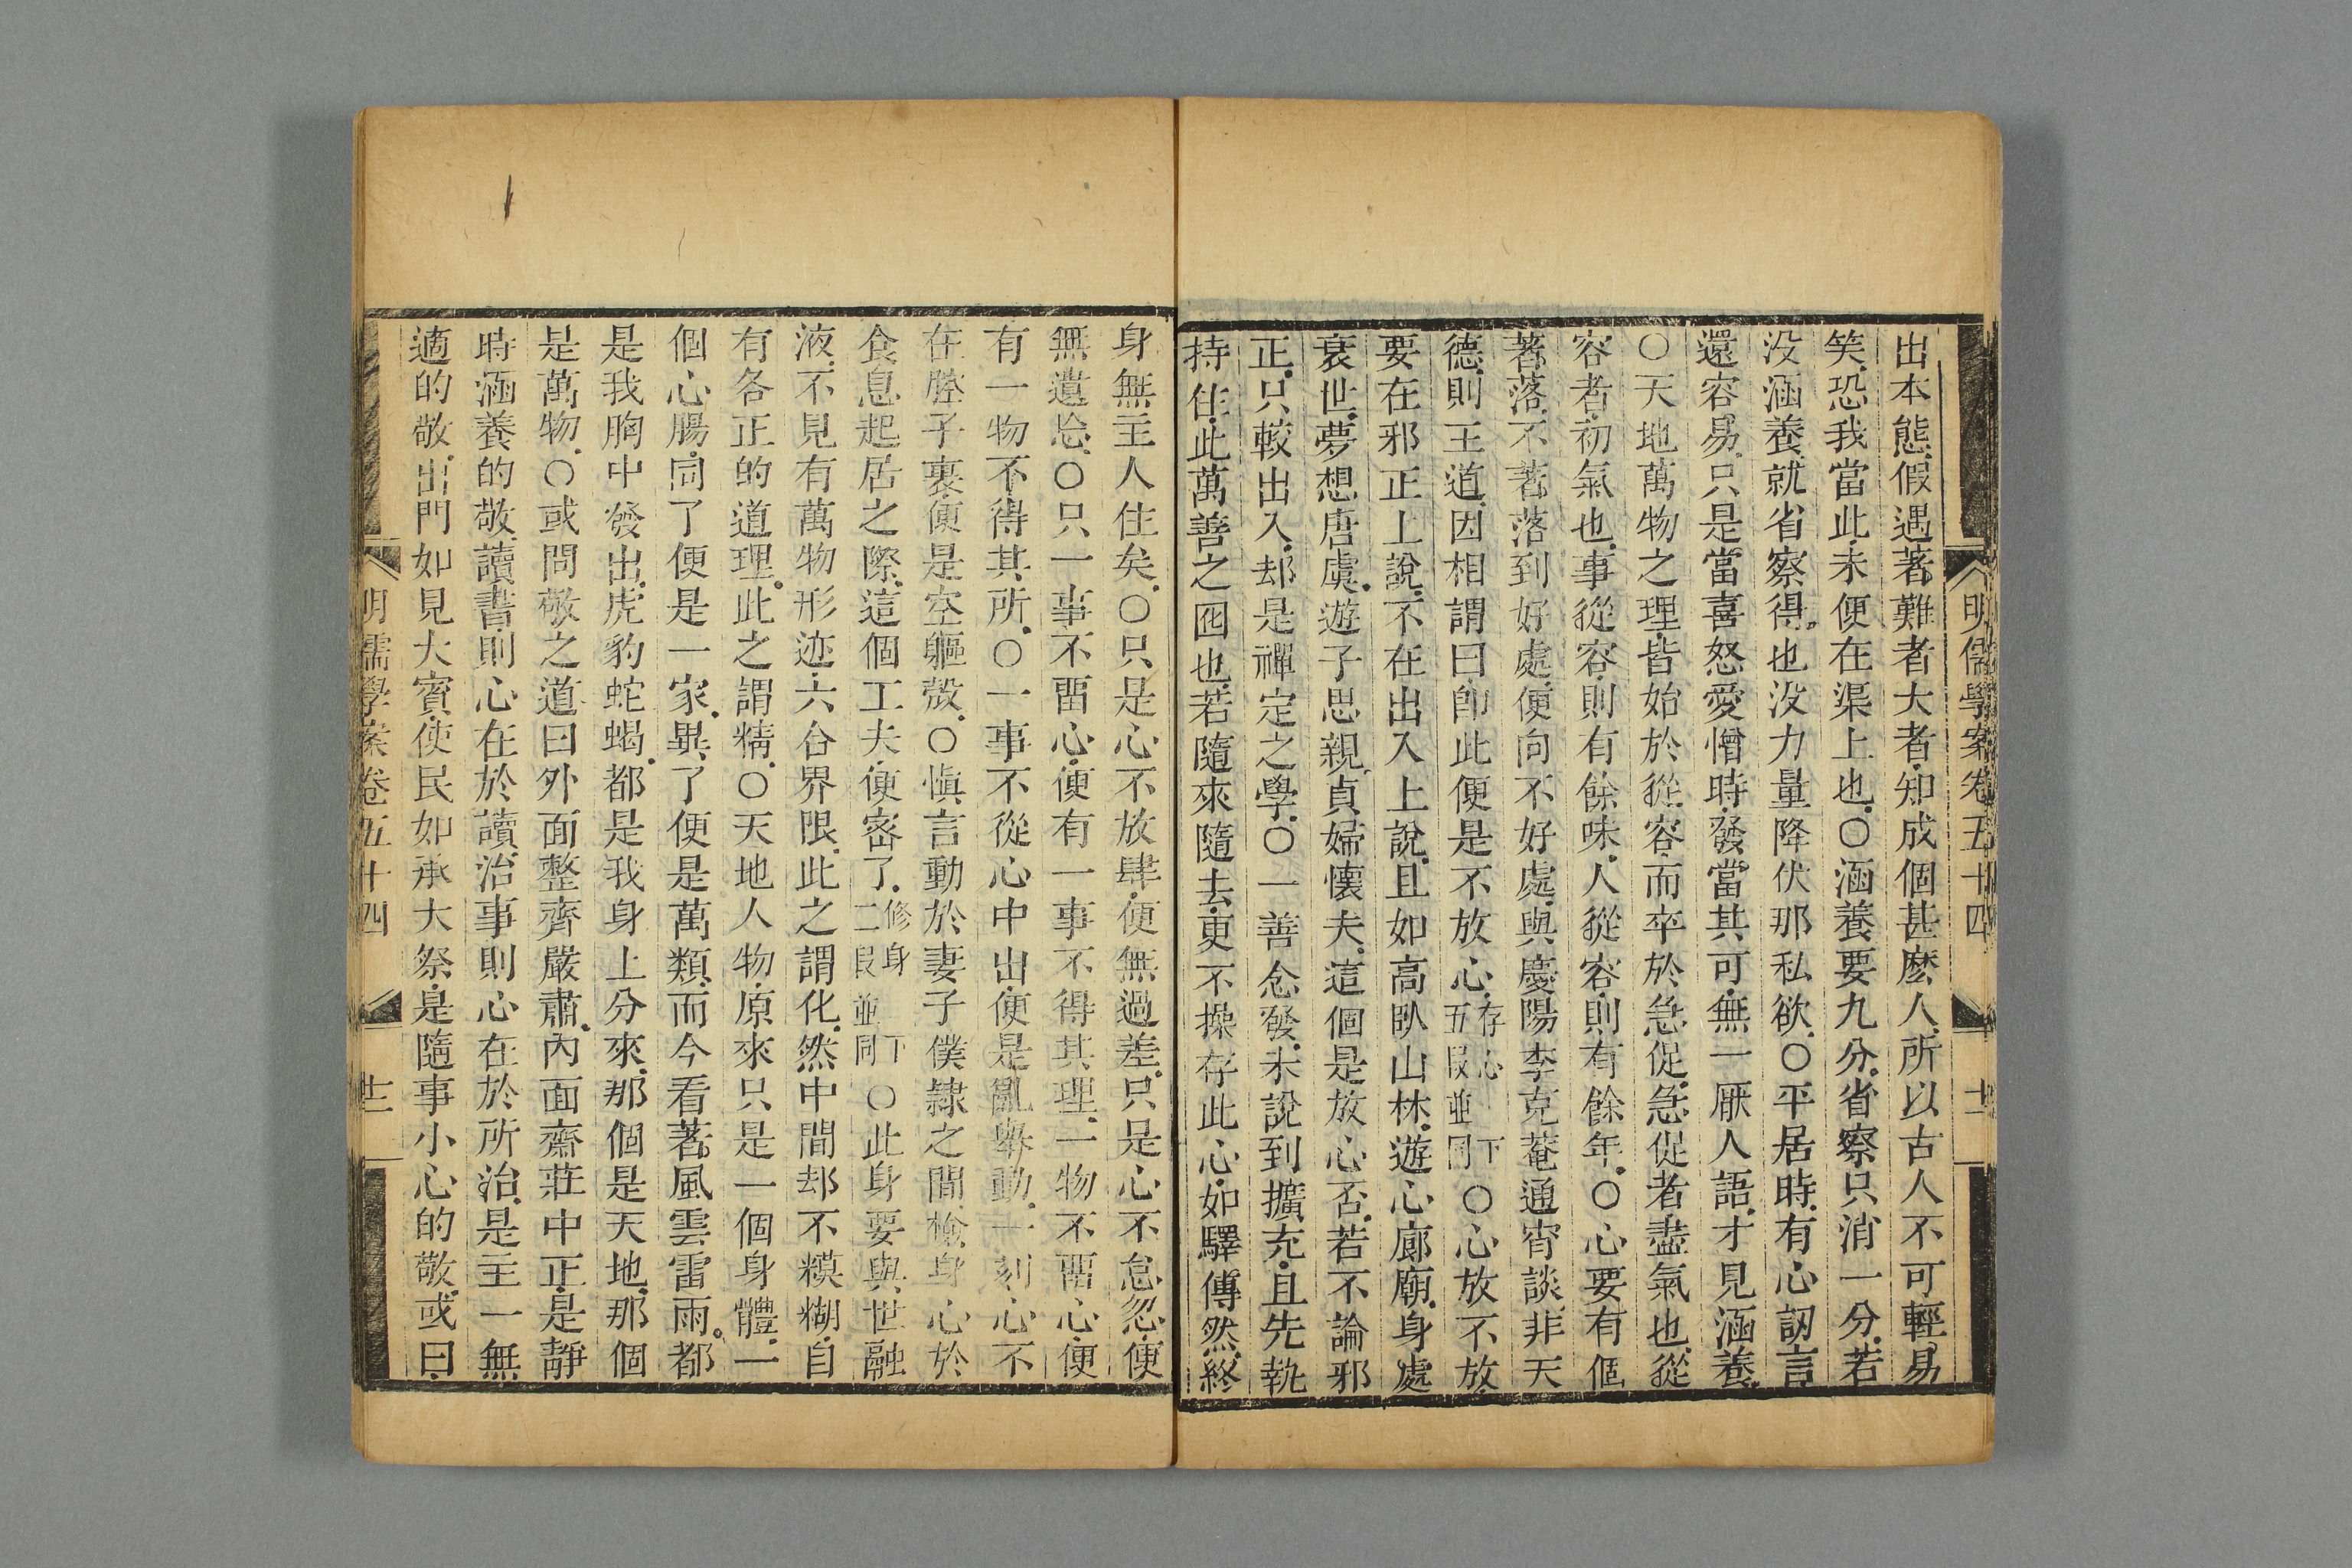 明儒學案卷五十四
十二
出本態假遇著難者大者知成個甚麽人所以古人不可輕易
笑恐我當此未便在渠上也○涵養要九分省察只消一分若
没涵養就省察得也没力量降伏那私欲○平居時有心訒言
還容易只是當喜怒愛憎時發當其可無一厭人語才見涵養
○天地萬物之理皆始於從容而卒於急促急促者盡氣也從
容者初氣也事從容則有餘味人從容則有餘年○心要有個
著落不著落到好處便向不好處與慶陽李克菴通宵談非天
德則王道因相謂曰卽此便是不放心存心下五段並同○心放不放
要在邪正上說不在出入上說且如高臥山林遊心廊廟身處
衰世夢想唐虞遊子思親貞婦懷夫這個是放心否若不論邪
正只較出入却是禪定之學○一善念發未說到擴充且先執
持住此萬善之囮也若隨來隨去更不操存此心如驛傳然終
身無主人住矣○只是心不放肆便無過差只是心不怠忽便
無遺忘○只一事不畱心便有一事不得其理一物不畱心便
有一物不得其所○一事不從心中出便是亂舉動一刻心不
在腔子裏便是空軀殼○愼言動於妻子僕隷之間檢身心於
食息起居之際這個工夫便密了修身下二段並同○此身要與世融
液不見有萬物形迹六合界限此之謂化然中間却不糢糊自
有各正的道理此之謂精○天地人物原來只是一個身體一
個心腸同了便是一家異了便是萬類而今看著風雲雷雨都
是我胸中發出虎豹蛇蝎都是我身上分來那個是天地那個
是萬物○或問敬之道曰外面整齊嚴肅內面齋莊中正是靜
時涵養的敬讀書則心在於讀治事則心在於所治是主一無
適的敬出門如見大賓使民如承大祭是隨事小心的敬或曰
明儒學案卷五十四
十二